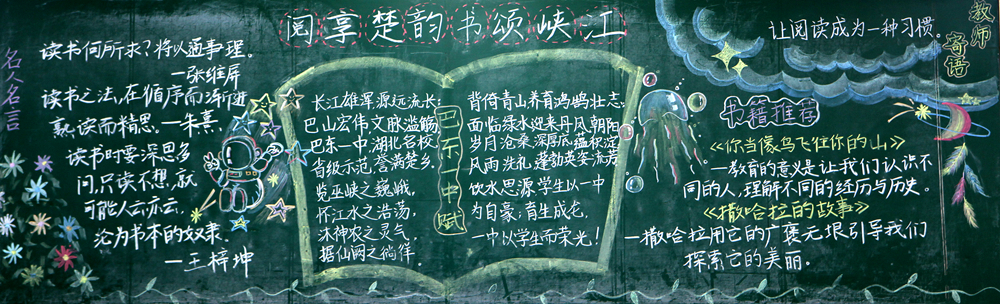 阅享楚韵 书颂峡江
名人名言
读书何所求?将以通事理。
—张维屏
读书之法,在循序而渐进,
熟读而精思。—朱熹
读书时要深思多
问,只读不想,就
可能人云亦云,
沦为书本的奴隶。
—王梓坤
巴东一中赋
长江雄浑源远流长;
巴山宏伟文脉滥觞。
巴东一中湖北名校,
省级示范,誉满楚乡。
览巫峡之巍峨,
怀江水之浩荡,
沐神农之灵气,
据仙阙之徜徉。
背倚青山养育鸿鹄壮志;
面临绿水迎来丹凤朝阳。
岁月沧桑深厚底蕴积淀,
风雨洗礼蓬勃英姿流芳。
饮水思源学生以一中
为自豪,育生成屯,
一中以学生而荣光!
教师寄语
让阅读成为一种习惯。
书籍推荐
《你当像鸟飞往你的山》
—教育的意义是让我们认识不
同的人,理解不同的经历与历史。
《撒哈拉的故事》
—撒哈拉用它的广袤无垠引导我们
探索它的美丽。